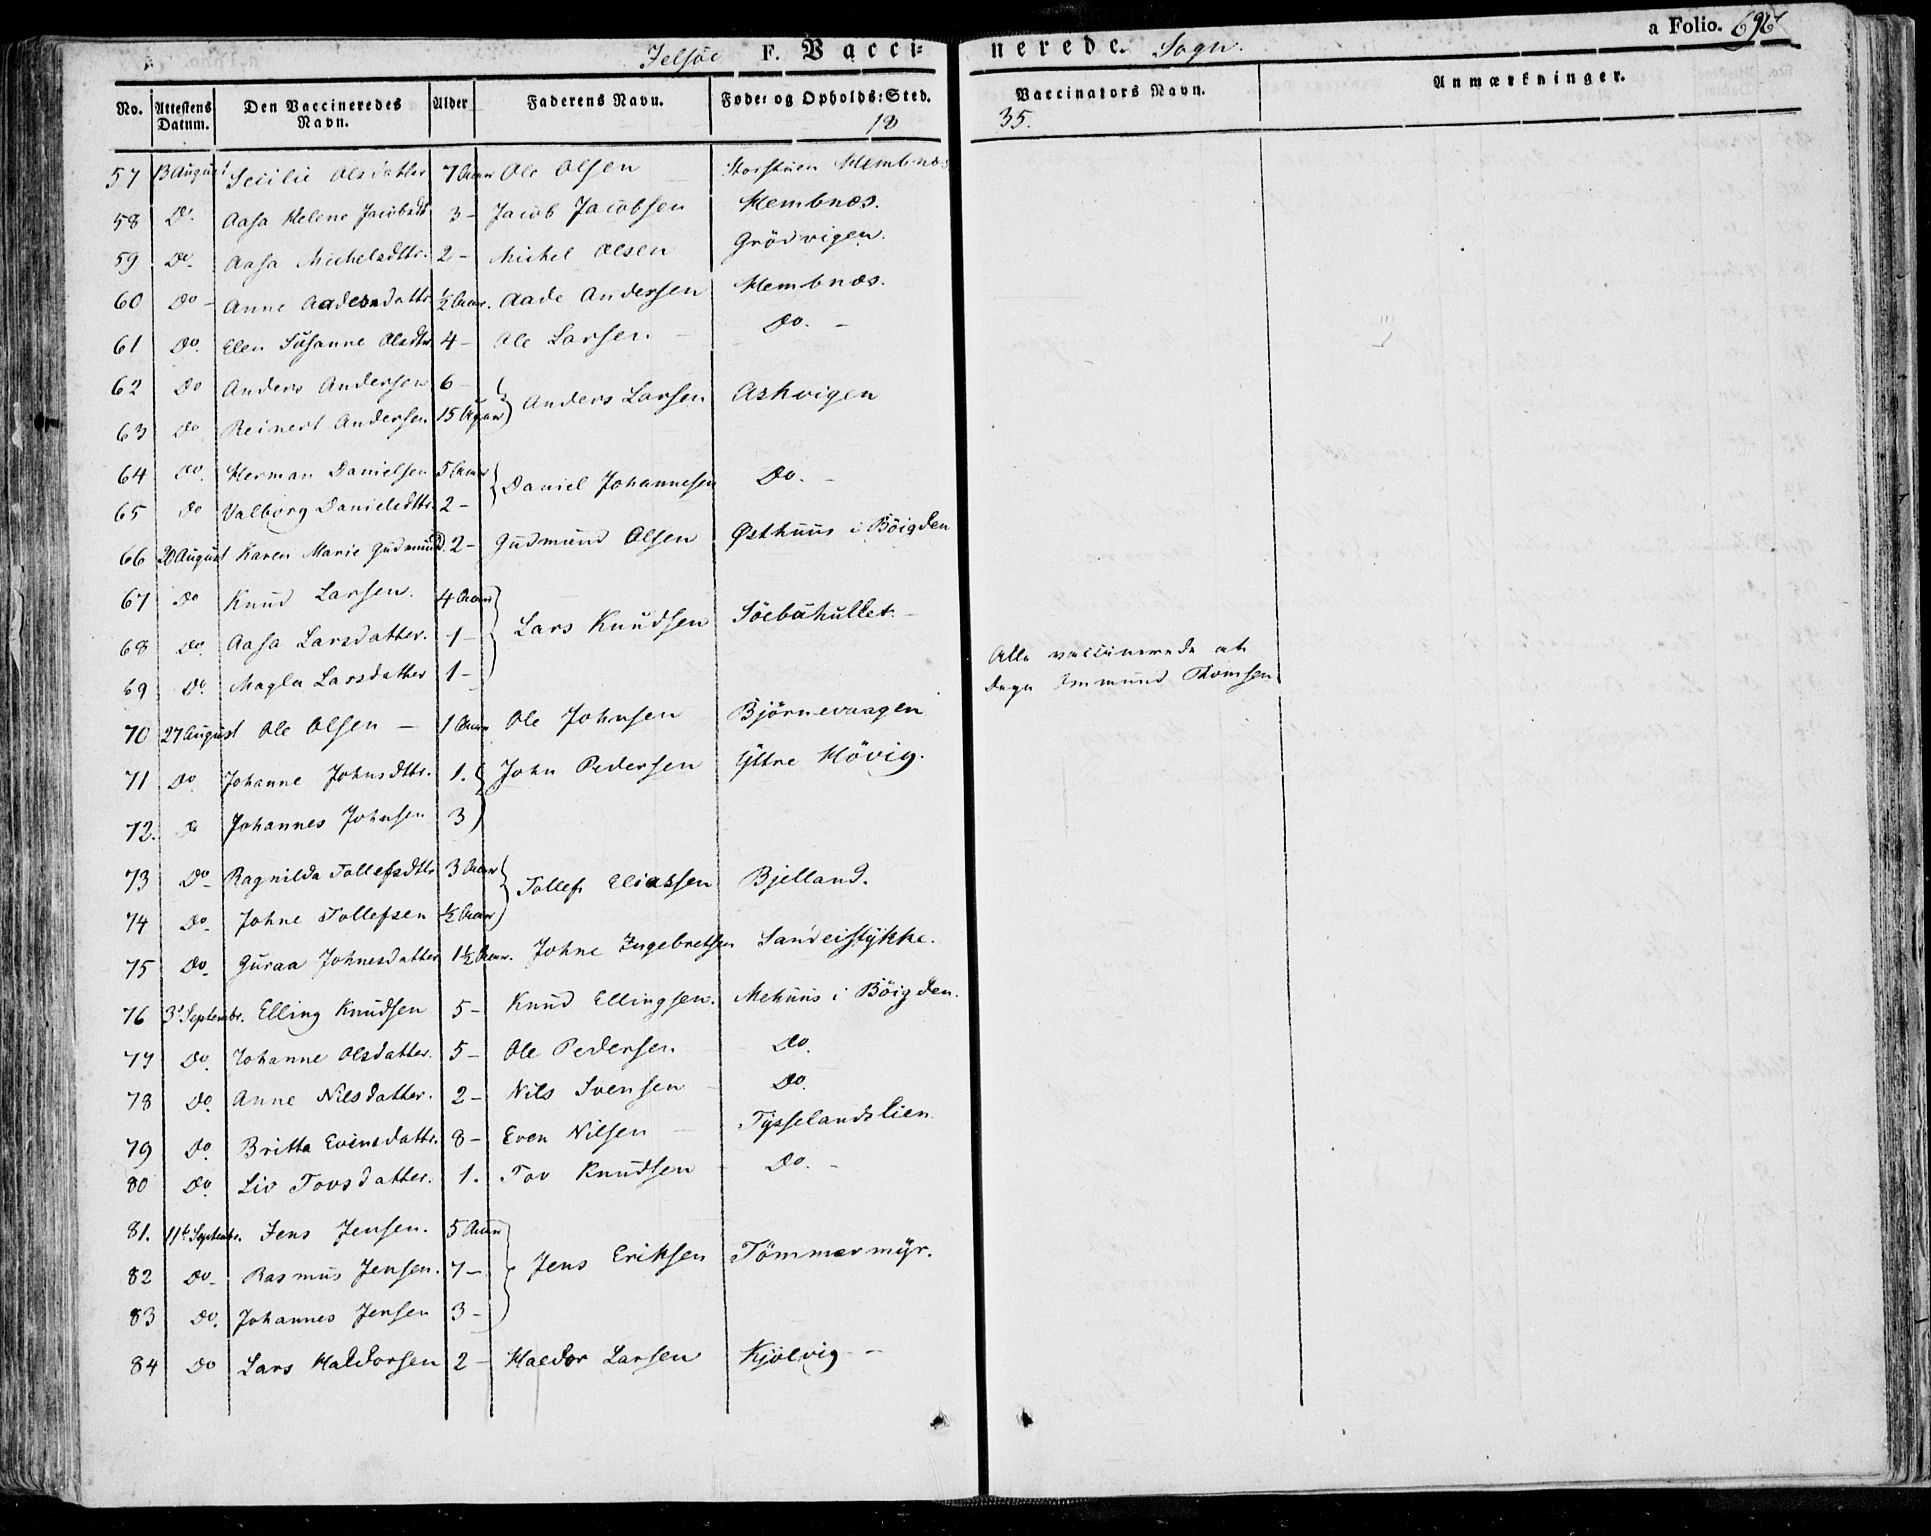 Jelsöe F. Vacci= nerede. Sogn. a Folio. 696
No. Attestens Datum. Den Vaccineredes Navn. Alder Faderens Navn. Føde: og Opholds: Sted. Vaccinators Navn. Anmærkninger.
18 35.
57 13 August Secilie Olsdatter 7 Aar Ole Olsen Storstuen Hembnæs
58 Do. Aasa Helene Jacobsdt 3 - Jacob Jacobsen Hembnæs.
59 Do. Aasa Michelsdttr. 2 - Michel Olsen Grödvigen.
60 Do - Anne Aadesdattr ½ Aar. Aade Andersen Hembnæs.
61 Do. Elen Susanne Olsdtr 4 - Ole Larsen - Do. -
62 Do Anders Andersen 6 -
63 Do Reinert Andersen 15 Uger } Anders Larsen Askvigen
64 Do. Herman Danielsen 5 Aar
65 Do Valborg Danielsdttr. 2 - } Daniel Johannesen Do. -
66 20 August Karen Marie Gudmund. 2 - Gudmund Olsen Østhuus i Böigden
67 Do Knud Larsen. 4 Aar
68 Do. Aasa Larsdatter. 1 - } Lars Knudsen Söebuhullet. -
69 Do. Magla Larsdatter 1 -
Alle vaccinerede at
Degn Ommund Thomsen.
70 27 August Ole Olsen - 1 Aar Ole Johnsen Björnevaagen
71 Do Johanne Johnsdttr. 1. { John Pedersen Yttre Hövig.
72. Do Johannes Johnsen 3 )
73 Do - Ragnilda Tollefsdttr 3 Aar
74 Do. Johne Tollefsen ½ Aar } Tollef Eliassen Bjelland.
75 Do. Guraa Johnesdatter 1½ Aar. Johne Ingebretsen Sandeistykke.
76 3 Septembr. Elling Knudsen 5 - Knud Ellingsen. Mehuus i Böigden.
77 Do. Johanne Olsdatter. 5 - Ole Pedersen Do.
78 Do. Anne Nilsdatter. 2 - Nils Svensen Do.
79 Do. Britta Evensdattr. 8 - Even Nilsen - Tysselandslien
80 Do. Liv Tovsdatter. 1. Tov Knudsen - Do. -
81. 11t Septembr. Jens Jensen. 5 Aar
82 Do - Rasmus Jensen. 7 - } Jens Eriksen Tömmermyr.
83 Do. Johannes Jensen 3 -
84 Do Lars Haldorsen 2 - Haldor Larsen Kjölvig -